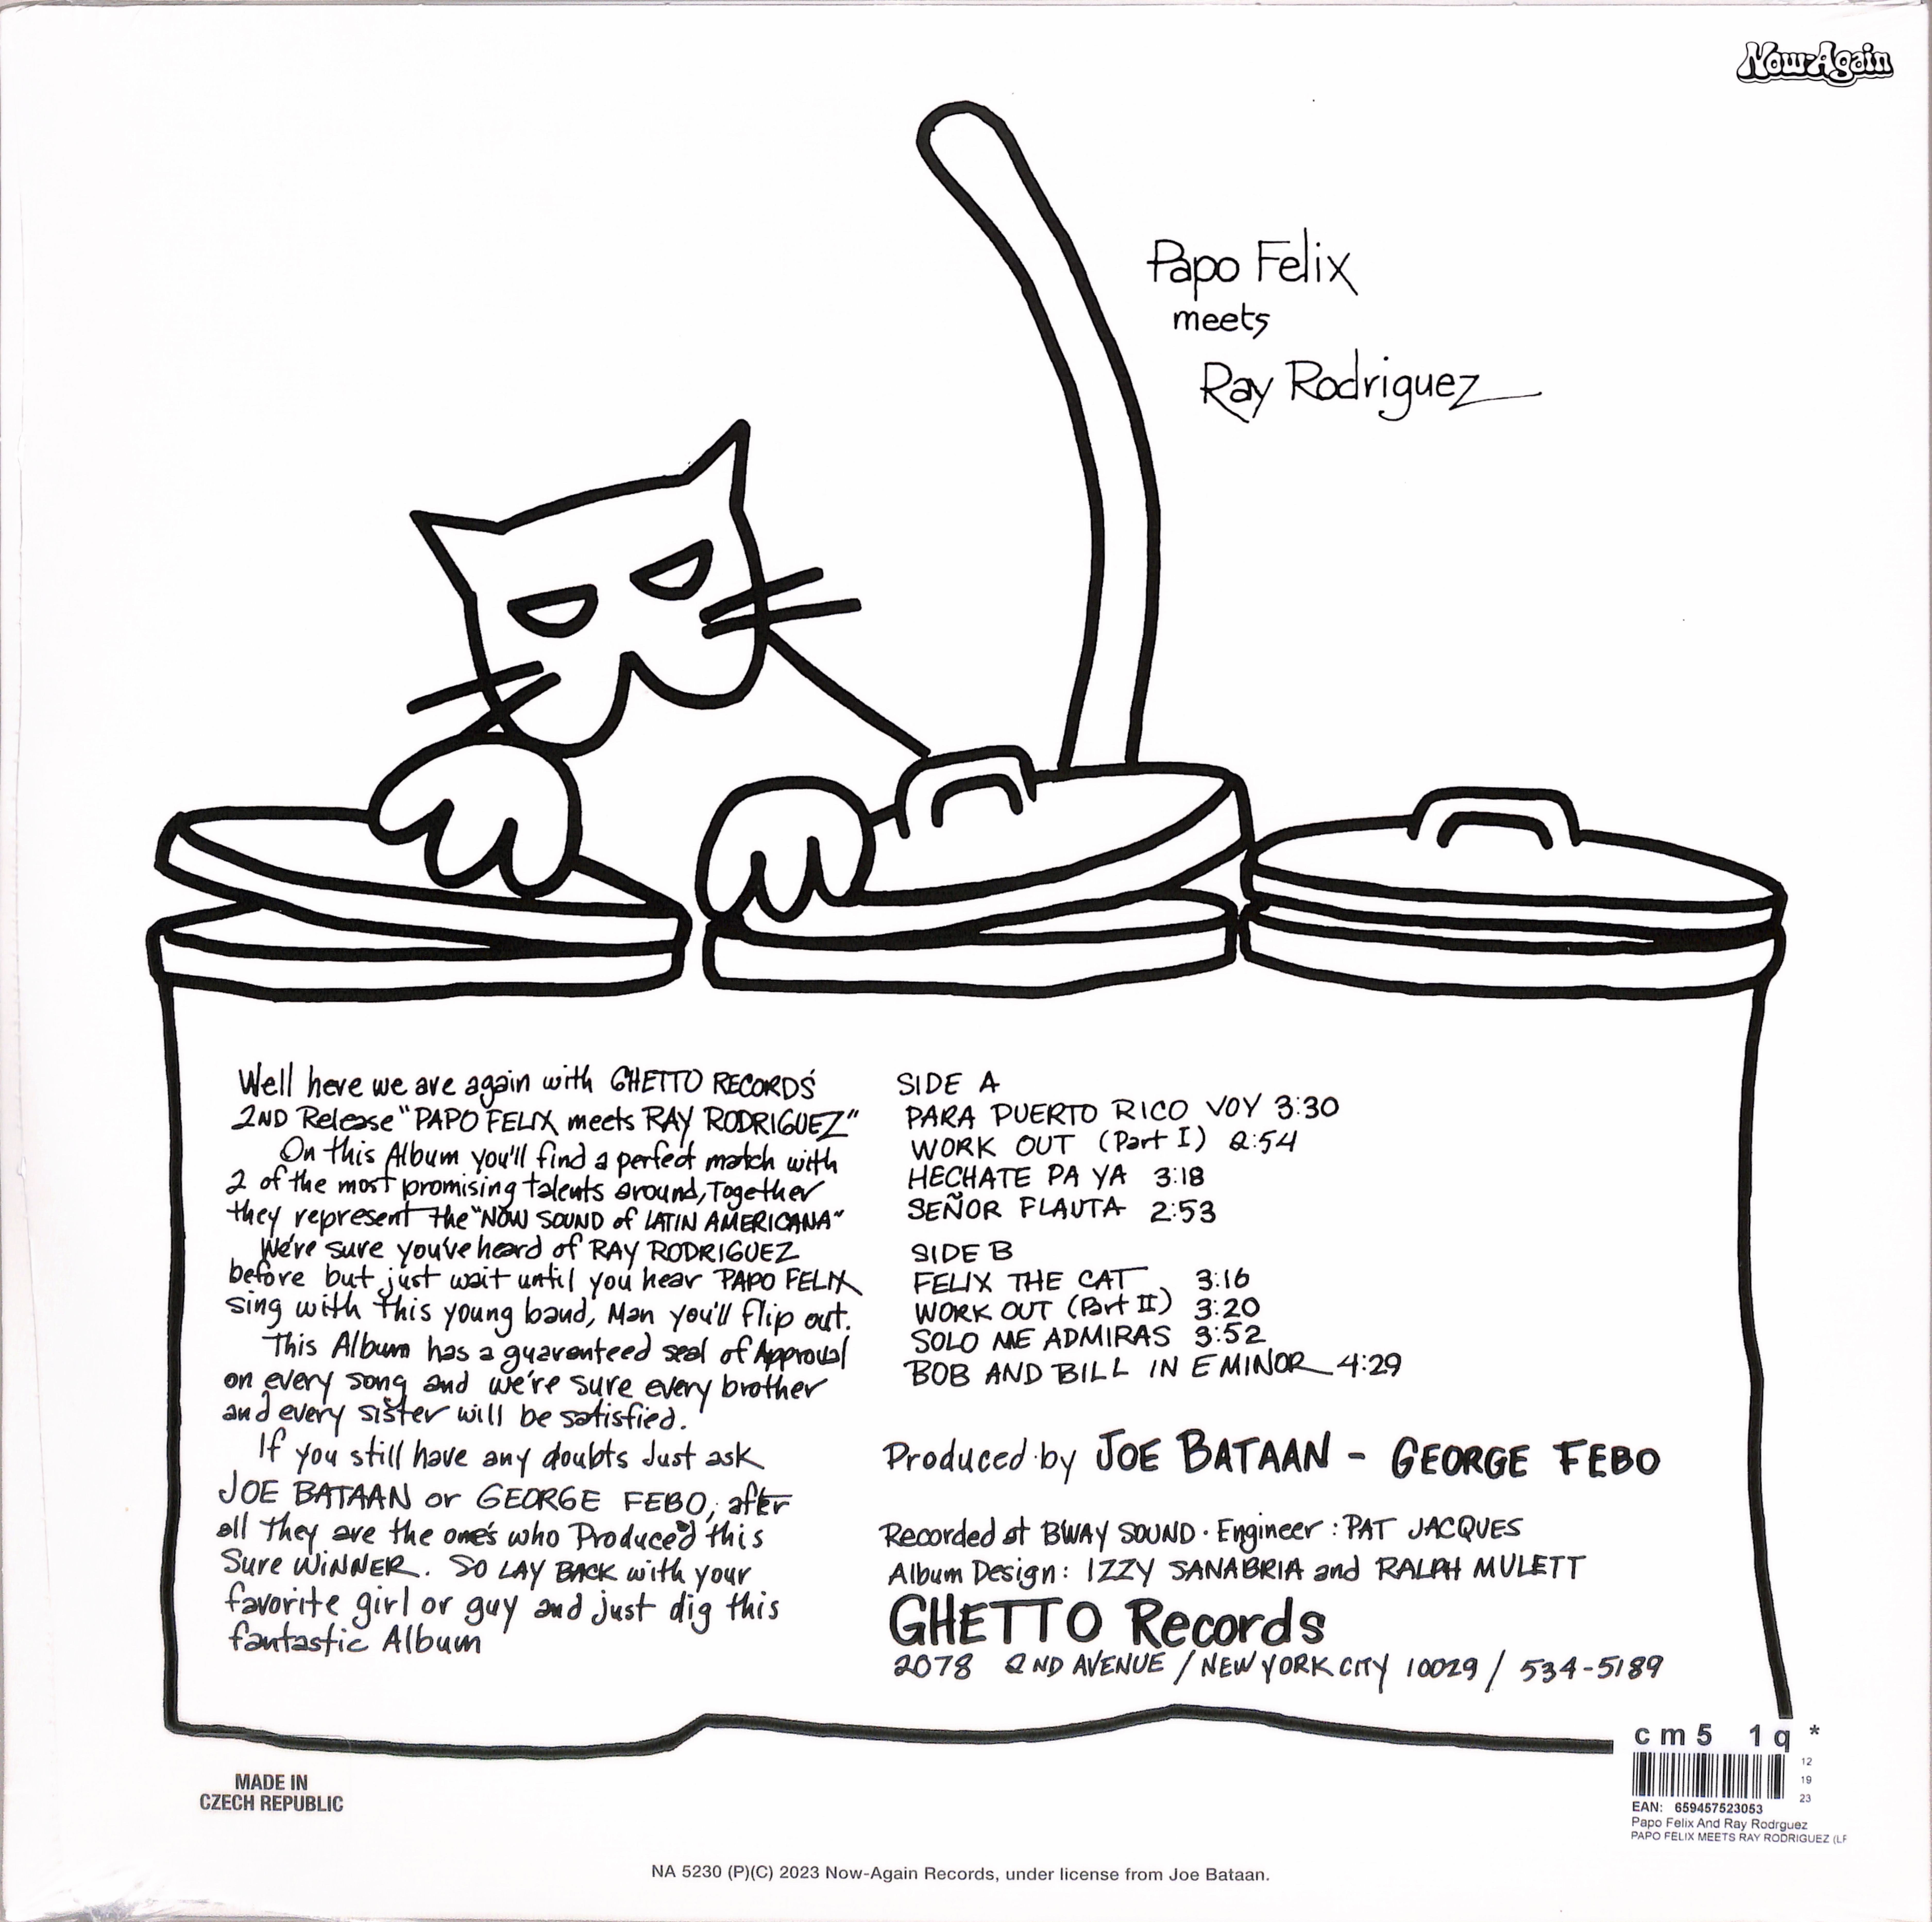 Now-Again
Papo Felix
meets
Ray Rodriguez
Well here we are again with GHETTO RECORDS'
2ND Release "PAPO FELIX meets RAY RODRIGUEZ"
On this Album you'll find a perfect match with
2 of the most promising talents around, Together
they represent the "NOW SOUND of LATIN AMERICANA"
We're sure you've heard of RAY RODRIGUEZ
before but just wait until you hear PAPO FELIX
sing with this young band, Man you'll flip out.
This Album has a guaranteed seal of Approval
on every song and we're sure every brother
and every sister will be satisfied.
If you still have any doubts Just ask
JOE BATAAN or GEORGE FEBO, after
all They are the one's who Produced this
Sure WINNER. SO LAY BACK with your
favorite girl or guy and just dig this
fantastic Album
SIDE A
PARA PUERTO RICO VOY 3:30
WORK OUT (Part I) 2:54
HECHATE PA YA 3:18
SEÑOR FLAUTA 2:53
SIDE B
FELIX THE CAT 3:16
WORK OUT (Part II) 3:20
SOLO ME ADMIRAS 3:52
BOB AND BILL IN E MINOR 4:29
Produced by JOE BATAAN - GEORGE FEBO
Recorded at B'WAY SOUND · Engineer : PAT JACQUES
Album Design : IZZY SANABRIA and RALPH MULETT
GHETTO Records
2078 2ND AVENUE / NEW YORK CITY 10029 / 534-5189
MADE IN
CZECH REPUBLIC
cm5 1q *
12
19
23
EAN: 659457523053
Papo Felix And Ray Rodrguez
PAPO FELIX MEETS RAY RODRIGUEZ (LP
NA 5230 (P)(C) 2023 Now-Again Records, under license from Joe Bataan.